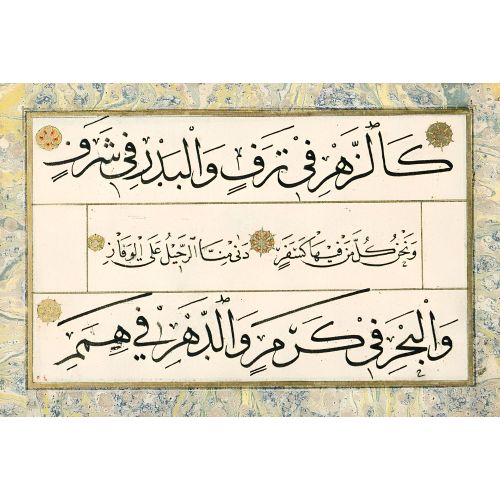 كَالزَّهْرِ فِي تَرَفٍ وَالْبَدْرِ فِي شَرَفٍ
وَنَحْنُ كُلُّ مَنْ فِيهَا كَسَفَرٍ دَنٰى مِنَّا الرَّحِيلُ عَلَى الْوِفَازِ
وَالْبَحْرِ فِي كَرَمٍ وَالدَّهْرِ فِي هِمَمِ